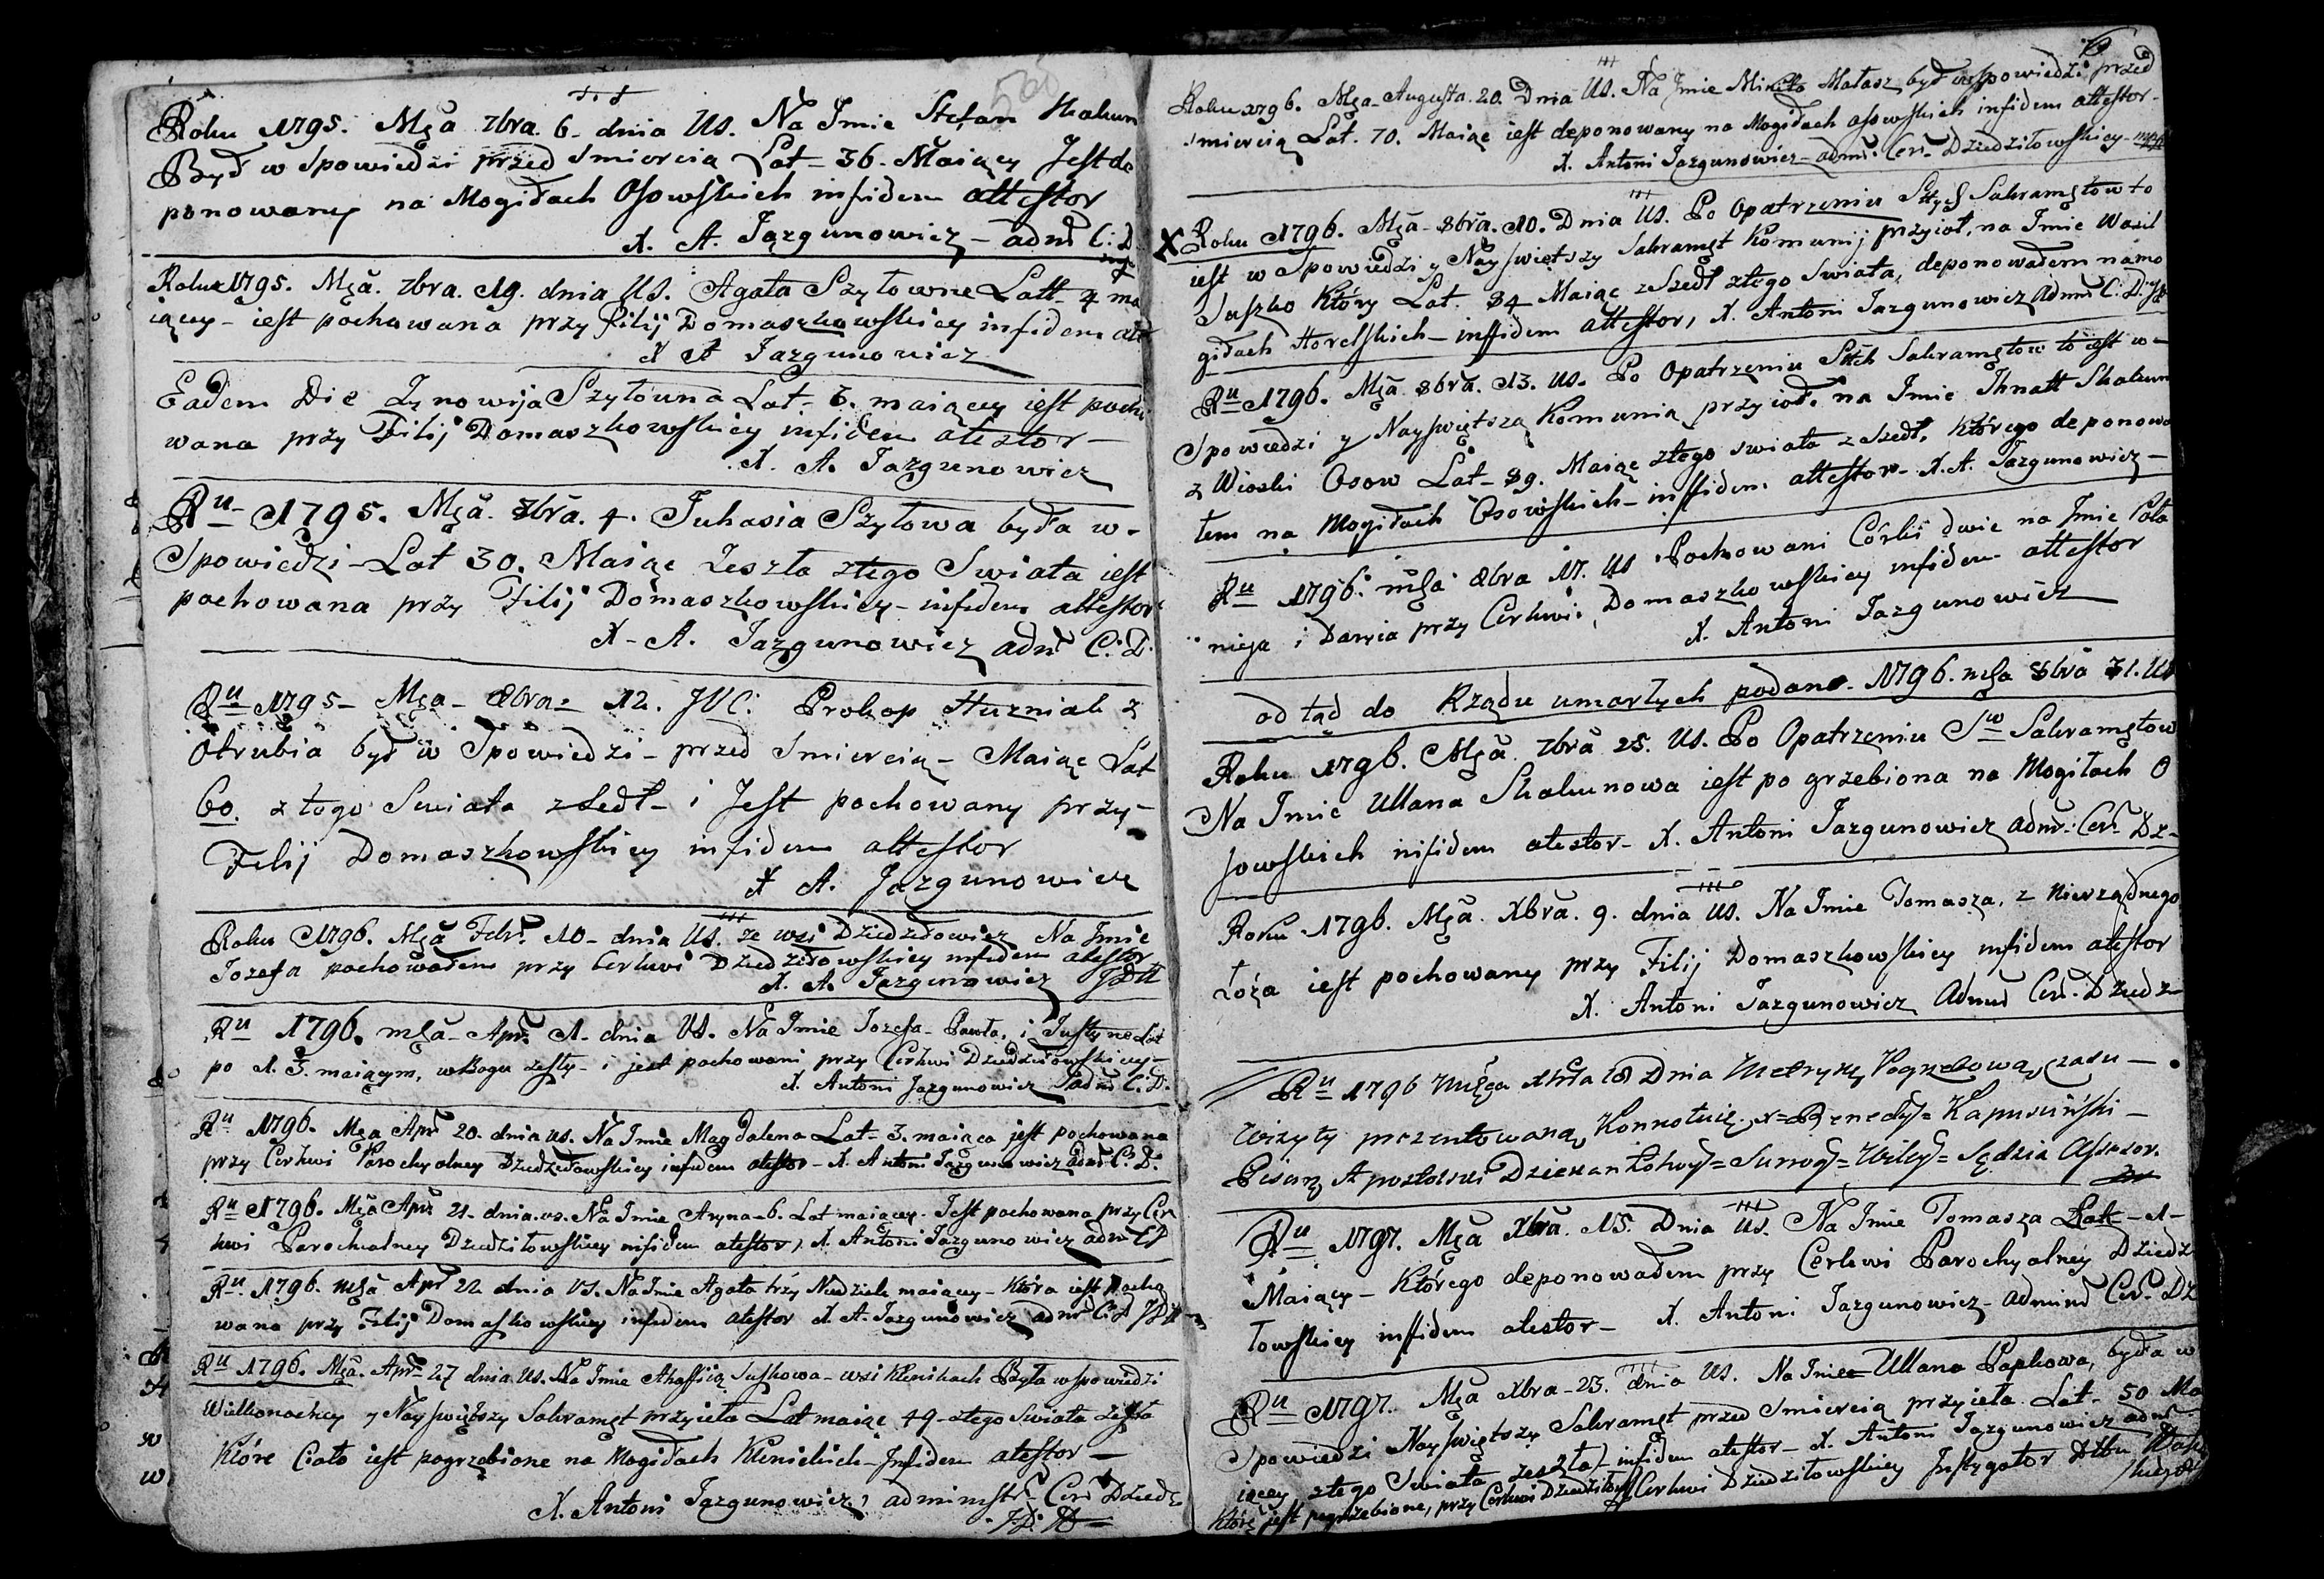 Roku 1795. Mca 7bra. 6. dnia VS. Na Jmie Stefan Skakun
Był w Spowiedzi przed Smiercią Lat = 36. Maiący Jest de
ponowany na Mogiłach Osowskich infidem attestor
X. A. Jazgunowicz – admr C: D.
Roku 1795. Mca. 7bra. 19. dnia VS. Agata Szytowne Latt. 4 ma
iący – iest pochowana przy Filij Domaszkowskiey infidem att
X A Jazgunowicz
Eadem Die Zynowija Szytowna Lat. maiący iest pocho
wana przy Filij Domaszkowskiey infidem atestor –
X. A. Jazgunowicz
Ru 1795. Mca. 8bra. 4. Juhasia Szytowa była w
Spowiedzi – Lat 30. Maiąc Zeszła ztego Swiata iest
pochowana przy Filij Domaszkowskiey – infidem attestor
X – A. Jazgunowicz admr C: D.
Ru 1795 – Mca – 8bra = 12. Prokop Huzniak z
Otrubia był w Spowiedzi – przed Smiercią – Maiąc Lat
60. z tego Swiata zszedł – i Jest pochowany przy –
Filij Domaszkowskiey infidem attestor
X A. Jazgunowicz
Roku 1796. Mca Febr. 10 – dnia VS. ze wsi Dziedziłowicz Na Jmie
Jozefa pochowałem przy Cerkwi Dziedziłowskiey infidem atestor
X. A. Jazgunowicz
Ru 1796. mca – Apr. 1. dnia VS. Na Jmie Jozefa – Pawła, i Justyne Lat
po 1. 3. maiącym, w Bogu zeszły – i jest pochowani przy Cerkwi Dziedziłowskiey –
X. Antoni Jazgunowicz admr C: D.
Ru 1796. Mca Apr 20. dnia vs. Na Jmie Magdalena Lat – 3. maiąca jest pochowana
przy Cerkwi Parochyalney Dziedziłowskiey infidem atestor – X. Antoni Jazgunowicz admr C: D.
Ru 1796. Mca Apr 21. dnia. vs. Na Jmie Aryna – 6. Lat maiący. Jest pochowana przy Cer
kwi Parochialney Dziedziłowskiey infidem atestor, X. Antoni Jazgunowicz admr CD
Ru 1796. mca Apr 22 dnia VS. Na Jmie Agata trzy Niedziele maiący – Która iest pocho
wana przy Filij Domaszkowskiey infidem atestor X. A. Jazgunowicz admr C: D
Ru 1796. Mca. Apr – 27 dnia. vs. Na Jmie Ahaffia Suszkowa – wsi Klenikach Była w spowiedzi
Wielkonocney y Nayswiętszy Sakrament przyieła Lat maiąc 49 – ztego Swiata zeszła
Które Ciało iest pogrzebione na Mogiłach Klenickich – Infidem atestor –
X. Antoni Jazgunowicz, administr. Cer. Dziedz
Roku 1796. Mca – Augusta. 20. Dnia VS. Na Jmie Mikita Matasz był w spowiedzi przed
smiercią Lat. 70. Maiąc iest deponowany na Mogiłach osowskich infidem attestor –
X. Antoni Jazgunowicz – admr Cer. Dziedziłowskiey –
X Roku 1796. Mca – 8bra. 10. Dnia VS. Po Opatrzeniu Sttych Sakramętow to
iest w Spowiedzi y Nayswiętszy Sakramęt Komunij przyioł, na Jmie Wasil
Suszko Który Lat. 84 – Maiąc zszedł ztego Swiata, deponowałem na mo
giłach Horelskich – infidem attestor, X. Antoni Jazgunowicz Admr C: D.
Ru 1796. Mca 8bra. 13. vs. Po Opatrzeniu Sttch Sakramętow to iest w –
Spowiedzi y Nayswiętszą Komunią przyioł. na Jmie Jhnatt Skakun
z Wioski Osow Lat – 89. Maiąc ztego swiata zszedł, Którego deponowa
łem na Mogiłach Osowskich – infidem attestor – X. A. Jazgunowicz –
Ru 1796. mca 8bra 17. vs Pochowani Córki dwie na Jmie Pała
nieja i Darria przy Cerkwi Domaszkowskiey infidem attestor
X. Antoni Jazgunowicz
od tąd do Rządu umarłych podano. 1796. mca 8bra 31. VS
Roku 1796. Mca. 7bra 25. VS. Po Opatrzeniu Sw Sakramętow
Na Jmie Ullana Skakunowa iest po grzebiona na Mogiłach O
sowskich infidem atestor – X. Antoni Jazgunowicz admr. Cer. Dz –
Roku 1796. Mca. Xbra. 9. dnia VS. Na Jmie Tomasza, z Nierządnego
Łóża iest pochowany przy Filij Domaszkowskiey infidem atestor
X. Antoni Jazgunowicz Admr Cer. Dziedz –
Ru 1796 Dnia Metrykę Pogrzebową czasu –
Wizyty prezentowaną Konnotuię x = Bened = Kapusciński –
Pisarz Apostolski Dziekan = Surrog = = Sędzia Assesor.
Ru 1797. Mca Xbra. 15. Dnia VS. Na Jmie Tomasza Lat – 1 –
Maiący – Którego deponowałem przy Cerkwi Parochyalney Dziedzi
łowskiey infidem atestor – X. Antoni Jazgunowicz – admr Cer. Dz
Ru 1797. Mca Xbra – 23. dnia VS. Na Jmie Ullana Papkowa, była w
Spowiedzi Nayswiętszy Sakramęt przed Smiercią przyieła Lat – 50 Ma
iący ztego Swiata zeszła – infidem atestor – X. Antoni Jazgunowicz admr
Które jest pogrzebione, przy Cerkwi Dziedziłow Cerkwi Dziedziłowskiey Instygator